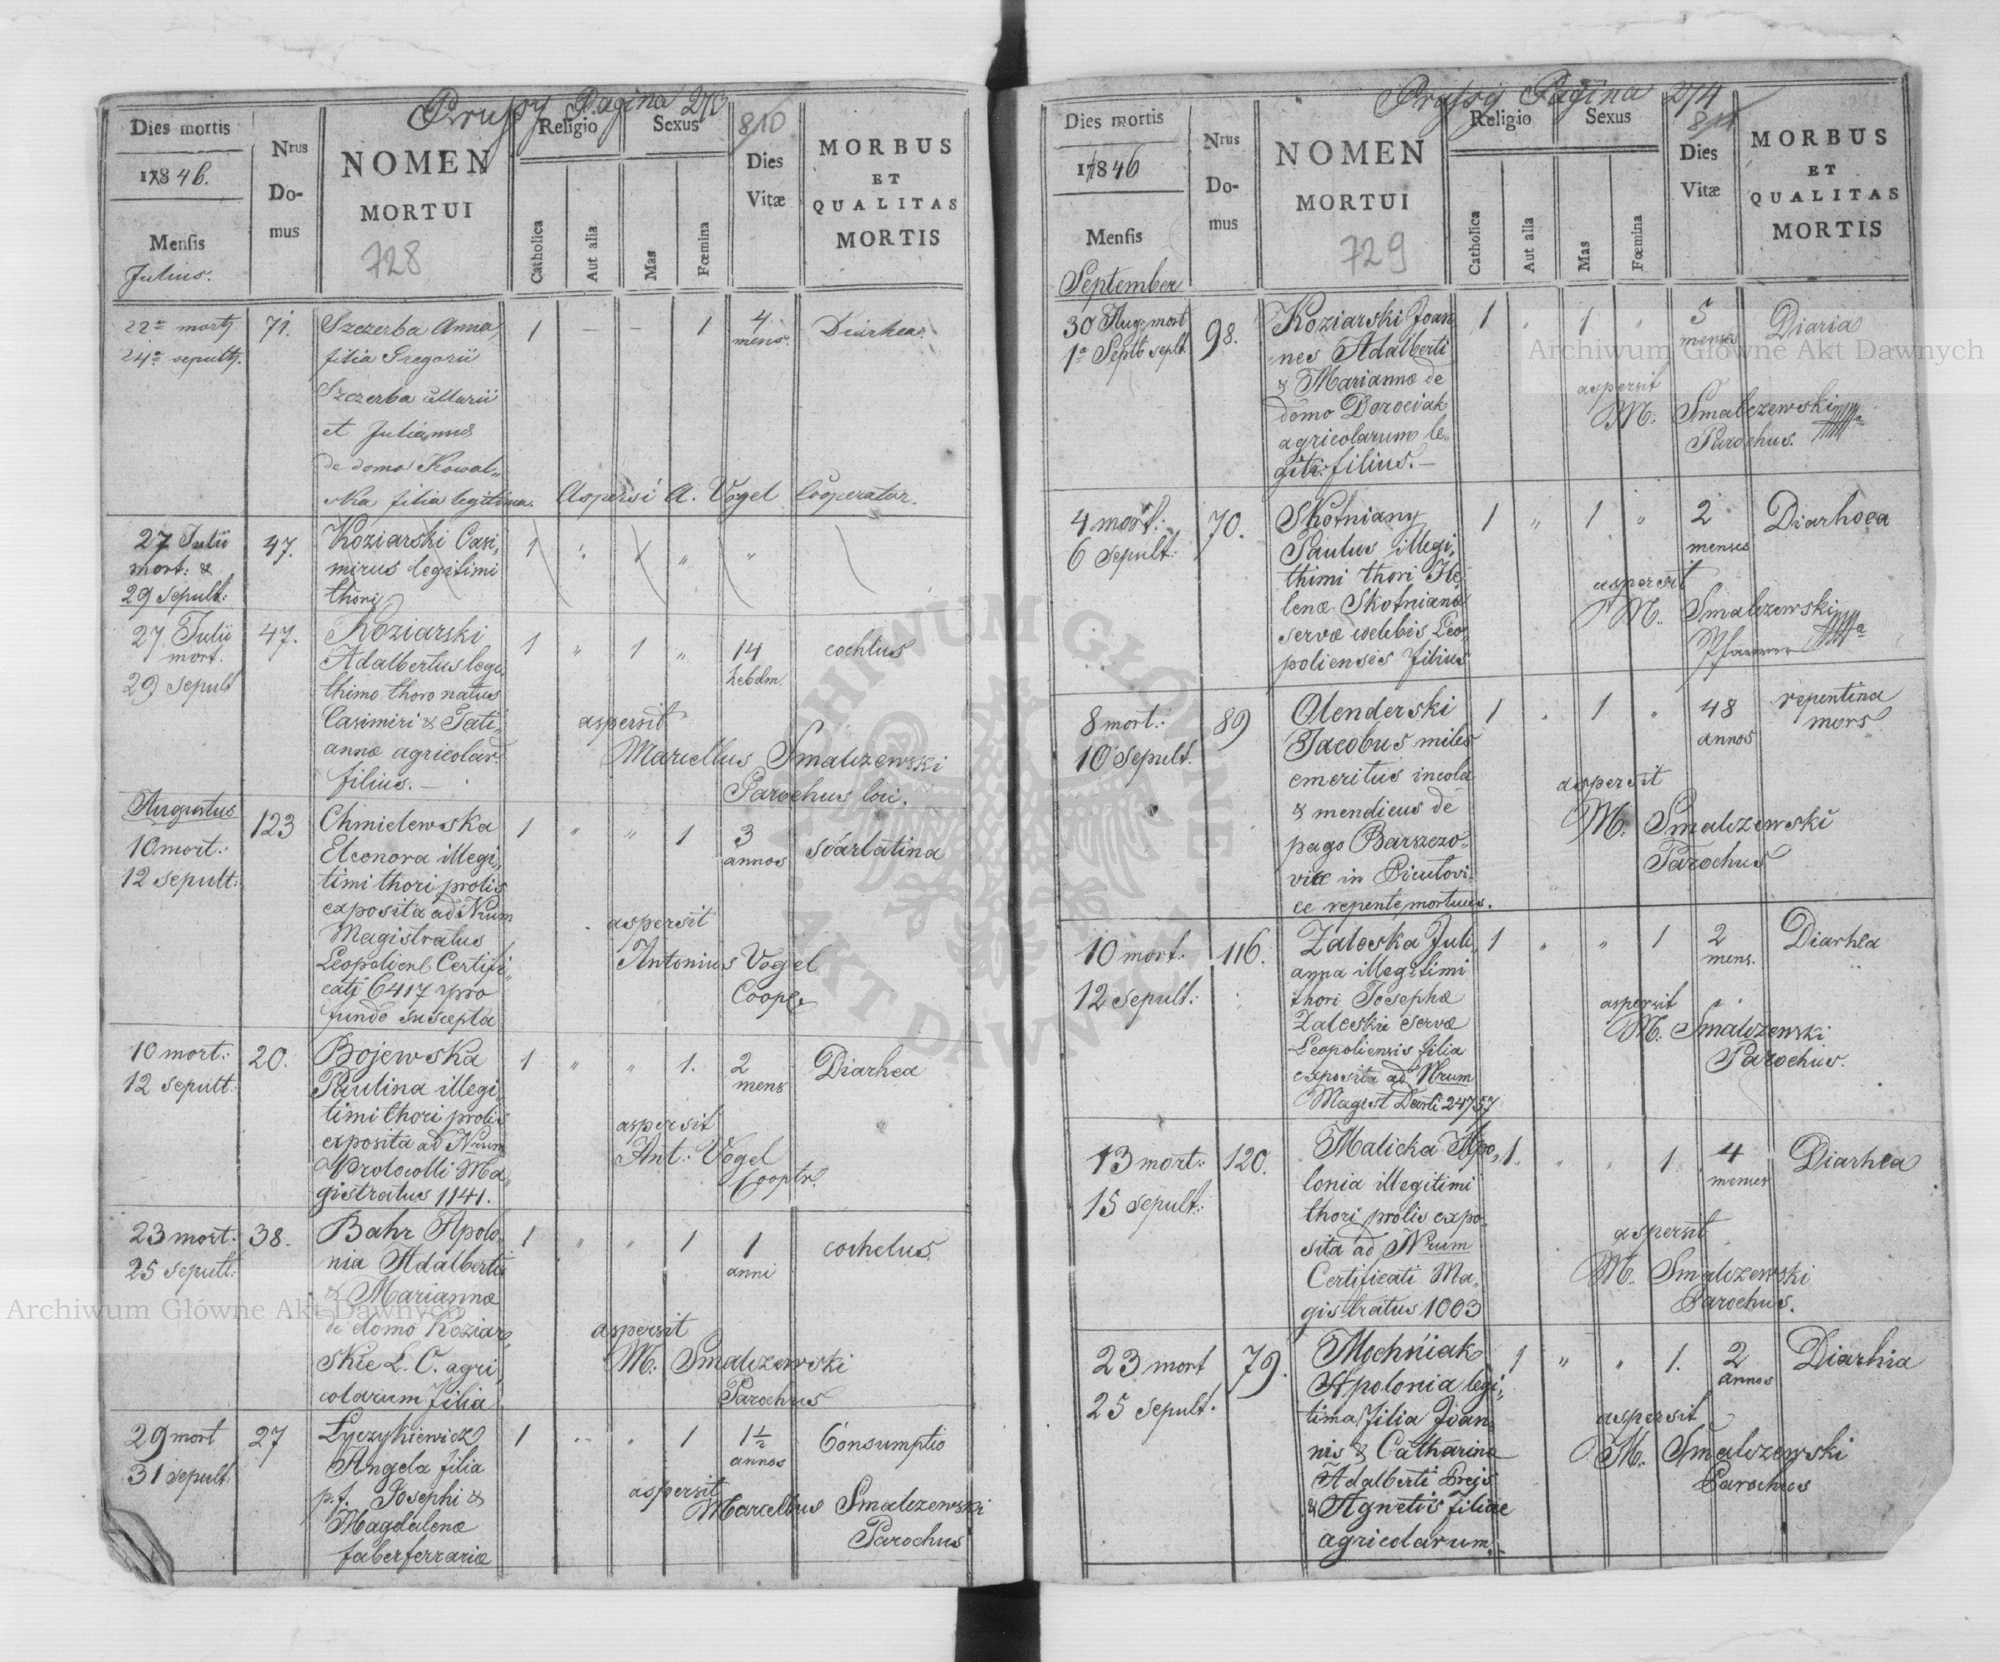 Prussy Pagina 273
810
Dies mortis
1846.
Mensis
Julius.
Nrus
Do-
mus
NOMEN
MORTUI
728
Religio
Catholica
Aut alia
Sexus
Mas
Fœmina
Dies
Vitæ
MORBUS
ET
QUALITAS
MORTIS
22a mort
24a sepult
71.
Szczerba Anna
filia Gregorii
Szczerba
et Julianna
de domo Kowal-
ska filia legitima.
1 — — 1
4
mens.
Diarhea.
Aspersi A. Vogel Cooperator.
27 Julii
mort: &
29 Sepult:
47.
Koziarski Casi-
mirus legitimi
thori
1 " 1 " "
27 Julii
mort.
29 Sepult
47.
Koziarski
Adalbertus legi-
thimo thoro natus
Casimiri & Tati-
annæ agricolar
filius. —
1 " 1 "
14
hebdm.
cochlus
aspersit
Marcellus Smalczewski
Parochus loci.
Augustus
10 mort:
12 sepult:
123
Chmielewska
Eleonora illegi-
timi thori prolis
exposita ad Nrum
Magistratus
Leopolienl Certifi-
catj 6417 pro
fundo suscepta
1 " " 1
3
annos
scarlatina
aspersit
Antonius Vogel
Coop.
10 mort:
12 sepult:
20.
Bojewska
Paulina illegi-
timi thori prolis
exposita ad Nrum
Protocolli Ma-
gistratus 1141.
1 " " 1.
2
mens
Diarhea
aspersit
Ant: Vogel
Cooptr.
23 mort:
25 sepult:
38.
Bahr Apolo-
nia Adalberti
& Mariannæ
de domo Koziar-
skie L. C. agri-
colarum filia
1 " " 1
1
anni
cochelus
aspersit
M. Smalczewski
Parochus
29 mort
31 sepult:
27
Łyczykiewicz
Angela filia
p.t. Josephi &
Magdalenæ
faberferrariæ
1 " " 1
1½
annos
Consumptio
aspersit
Marcellus Smalczewski
Parochus
Prussy Pagina 274
Dies mortis
1846
Mensis
September
Nrus
Do-
mus
NOMEN
MORTUI
729
Religio
Catholica
Aut alia
Sexus
Mas
Fœmina
Dies
Vitæ
MORBUS
ET
QUALITAS
MORTIS
30 Aug: mort
1a Septb seplt.
98.
Koziarski Joan-
nes Adalberti
& Mariannæ de
domo Dorociak
agricolarum le-
giti: filius. —
1 " 1 "
5
menses
Diaria
aspersit
M. Smalczewski
Parochus.
4 mort:
6 sepult:
70.
Skotniany
Paulus illegi-
thimi thori He-
lenæ Skotnianæ
servæ celebis Leo-
poliensis filius
1 " 1 "
2
menses
Diarhoea
aspersit
M. Smalczewski
Pfarrer
8 mort:
10 Sepult.
89
Olenderski
Jacobus miles
emeritus incola
& mendicus de
pago Barszczo-
vice in
ce repente mortuus.
1 " 1 "
48
annos
repentina
mors
aspersit
M. Smalczewski
Parochus
10 mort:
12 sepult:
116.
Zaleska Juli-
anna illegitimi
thori Josephæ
Zaleskie servæ
Leopoliensis filia
exposita ad Nrum
Magist 24757
1 " " 1
2
mens.
Diarhea
aspersit
M. Smalczewski
Parochus.
13 mort:
15 sepult:
120.
Malicka Apo-
lonia illegitimi
thori prolis expo-
sita ad Nrum
Certificati Ma-
gistratus 1003
1. " " 1.
4
menses
Diarhea
aspersit
M. Smalczewski
Parochus.
23 mort
25 sepult.
79.
Mochniak
Apolonia legi-
tima filia Joan-
nis & Catharina
Adalberti Prejs
& Agnetis filiae
agricolarum. —
1 " " 1.
2
annos
Diarhia
aspersit
M. Smalczewski
Parochus
Archiwum Główne Akt Dawnych
Archiwum Główne Akt Dawnych
ARCHIWUM GŁÓWNE AKT DAWNYCH